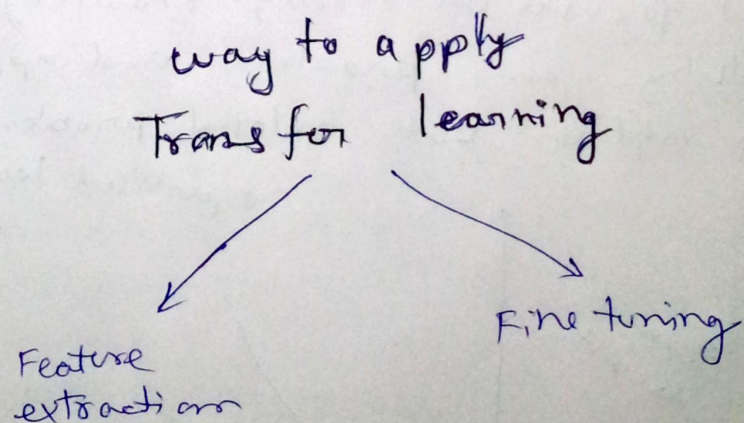 way to apply
Transfor learning
Feature
extraction
Fine tuning